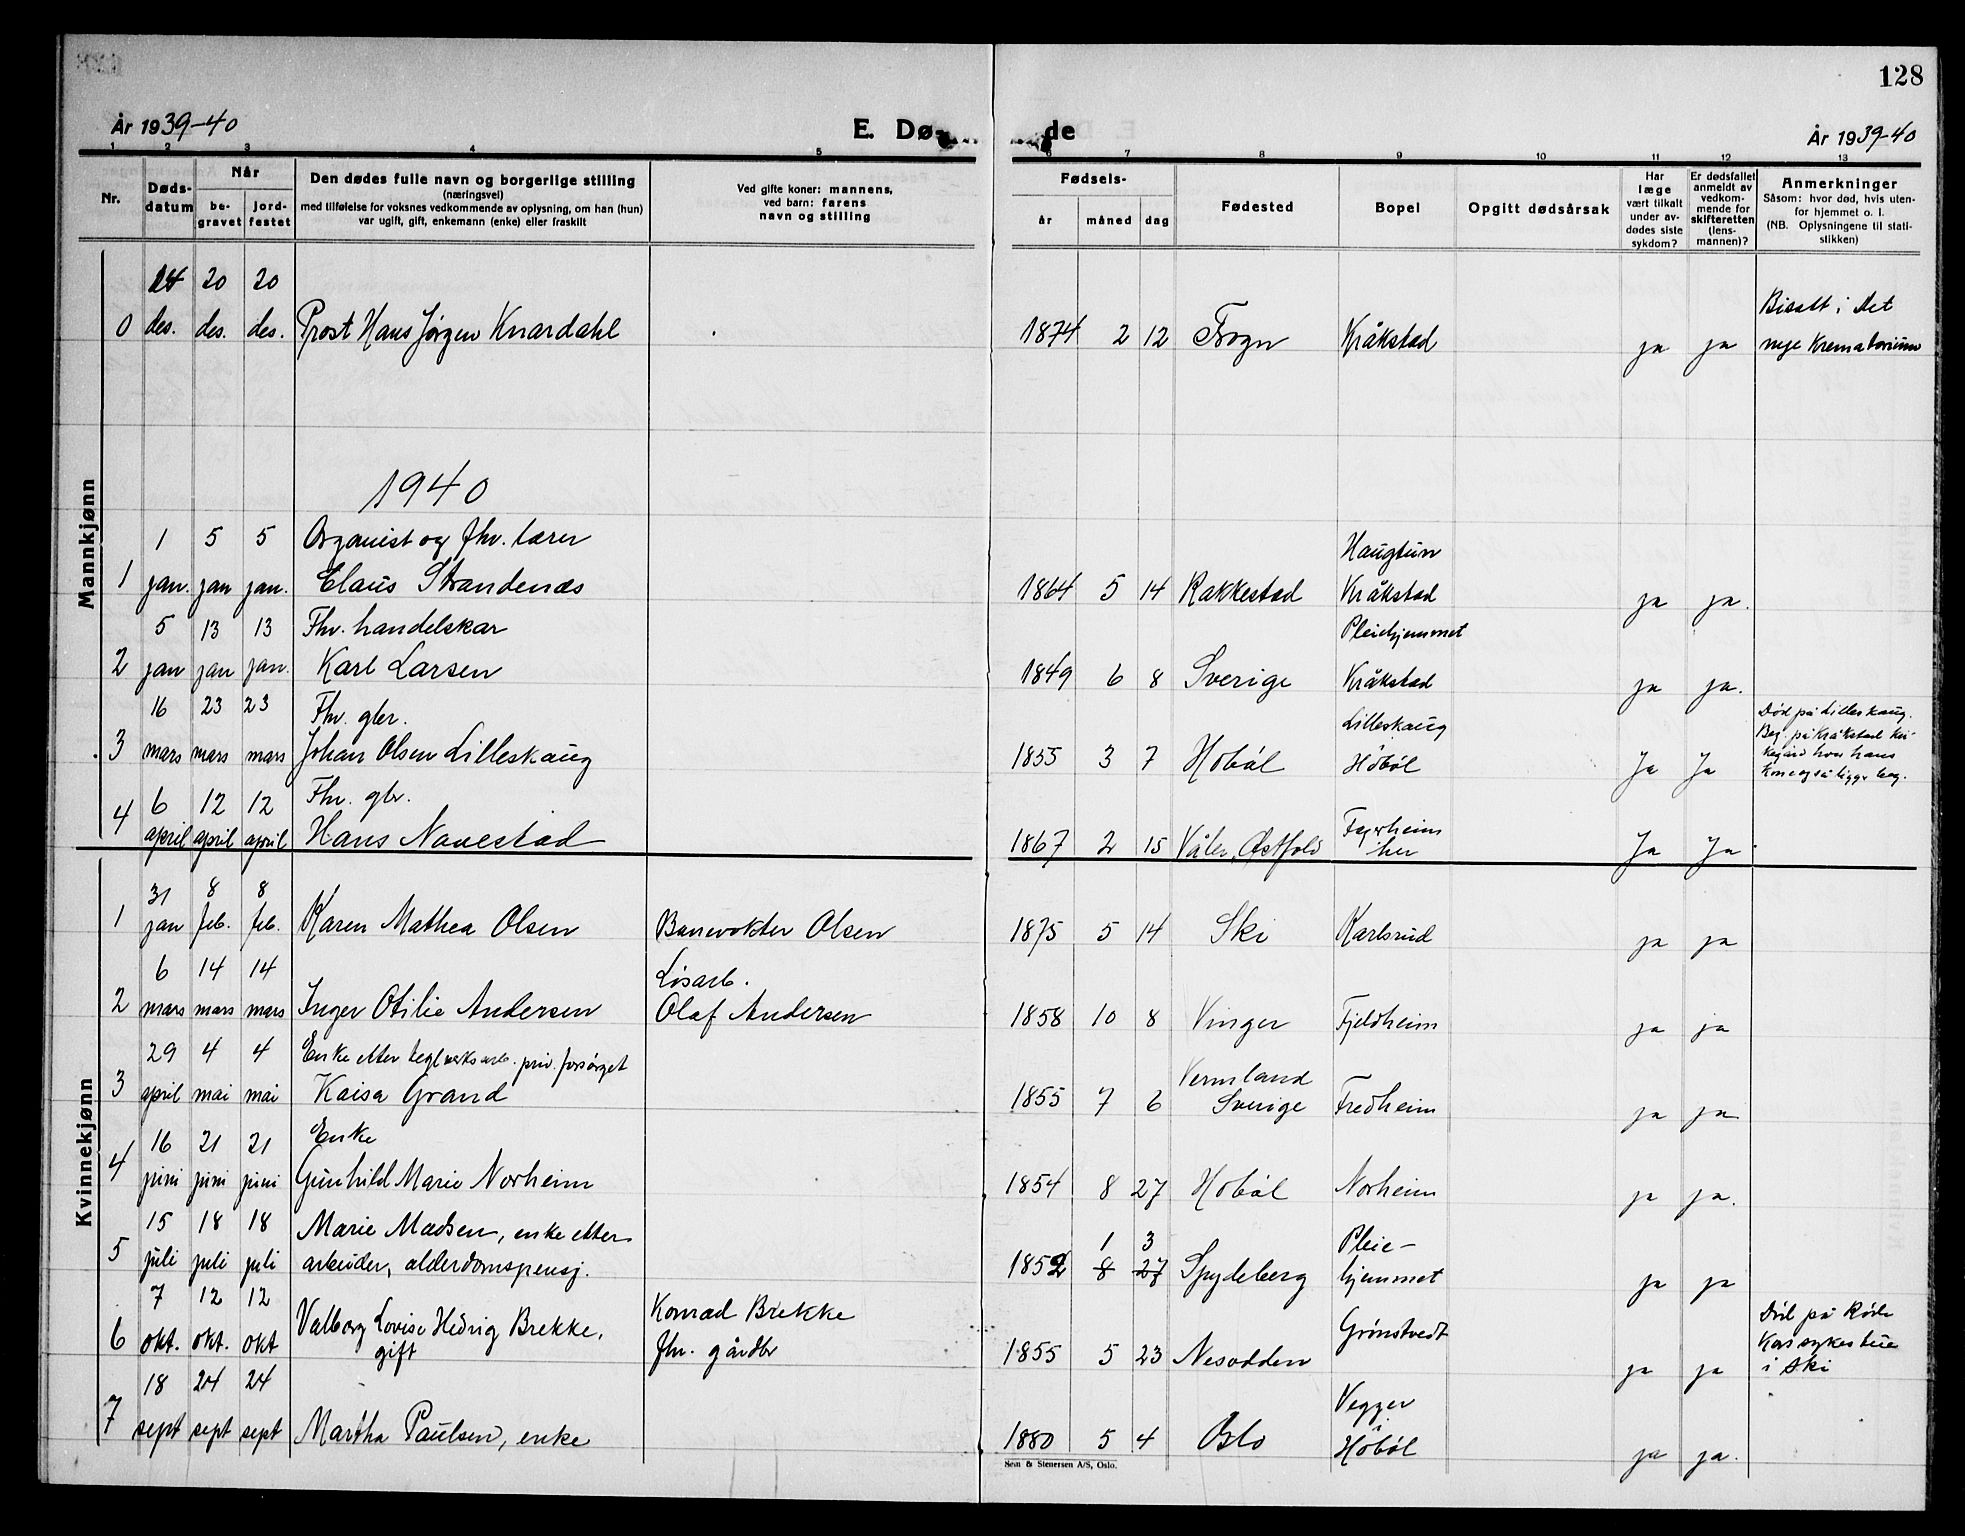 128
År 1939-40
E. Dø de
År 1939-40
1 2 3 4 5 6 7 8 9 10 11 12 13
Nr.
Døds-
datum
Når
be-
gravet
jord-
festet
Den dødes fulle navn og borgerlige stilling
(næringsvei)
med tilføielse for voksnes vedkommende av oplysning, om han (hun)
var ugift, gift, enkemann (enke) eller fraskilt
Ved gifte koner: mannens,
ved barn: farens
navn og stilling
Fødsels-
år måned dag
Fødested
Bopel
Opgitt dødsårsak
Har
læge
vært tilkalt
under av-
dødes siste
sykdom?
Er dødsfallet
anmeldt av
vedkom-
mende for
skifteretten
(lens-
mannen)?
Anmerkninger
Såsom: hvor død, hvis uten-
for hjemmet o. l.
(NB. Oplysningene til stati-
stikken)
Mannkjønn
20 20
Bisatt i Det
0 des. des. des. Prost Hans Jørgen Knardahl 1874 2 12 Frogn Kråkstad ja ja nye Krematorium
1940
1 5 5 Organist og fhv. lærer Haugtun
1 jan. jan jan. Claus Strandenæs 1864 5 14 Rakkestad Kråkstad ja ja.
5 13 13 Fhv. handelskar Pleiehjemmet
2 jan jan jan. Karl Larsen 1849 6 8 Sverige Kråkstad ja ja.
16 23 23 Fhv. gbr. Lilleskaug Død på Lilleskaug.
Beg. på Kråkstad kir-
3 mars mars mars Johan Olsen Lilleskaug 1855 3 7 Hobøl Hobøl Ja Ja kegård hvor hans
kone også ligger beg.
6 12 12 Fhv. gbr. Fagerheim
4 april april april Hans Navestad 1867 2 15 Våler, Østfold her Ja Ja.
Kvinnekjønn
31 8 8
1 jan feb. feb. Karen Mathea Olsen Banevokter Olsen 1875 5 14 Ski Karlsrud ja ja
6 14 14 Løsarb.
2 mars mars mars Inger Otilie Andersen Olaf Andersen 1858 10 8 Vinger Fjeldheim ja ja
29 4 4 Enke etter teglverksarb. priv. forsørget Vermland
3 april mai mai Kaisa Grand 1855 7 6 Sverige Fredheim ja ja
16 21 21 Enke
4 juni juni juni Gunhild Marie Norheim 1854 8 27 Hobøl Norheim ja ja.
15 18 18 Marie Madsen, enke etter 1 3 Pleie-
5 juli juli juli arbeider, alderdomspensj. 1852 8 27 Spydeberg hjemmet ja ja
7 12 12 Valborg Lovise Hedvig Brekke, Konrad Brekke Grønstvedt Død på Røde
6 okt. okt. okt gift fhv. gårdbr 1855 5 23 Nesodden ja ja Kors sykestue
i Ski
18 24 24 Vegger
i
7 sept sept sept Martha Paulsen, enke 1880 5 4 Oslo Hobøl ja ja.
Sem & Stenersen A/S, Oslo.